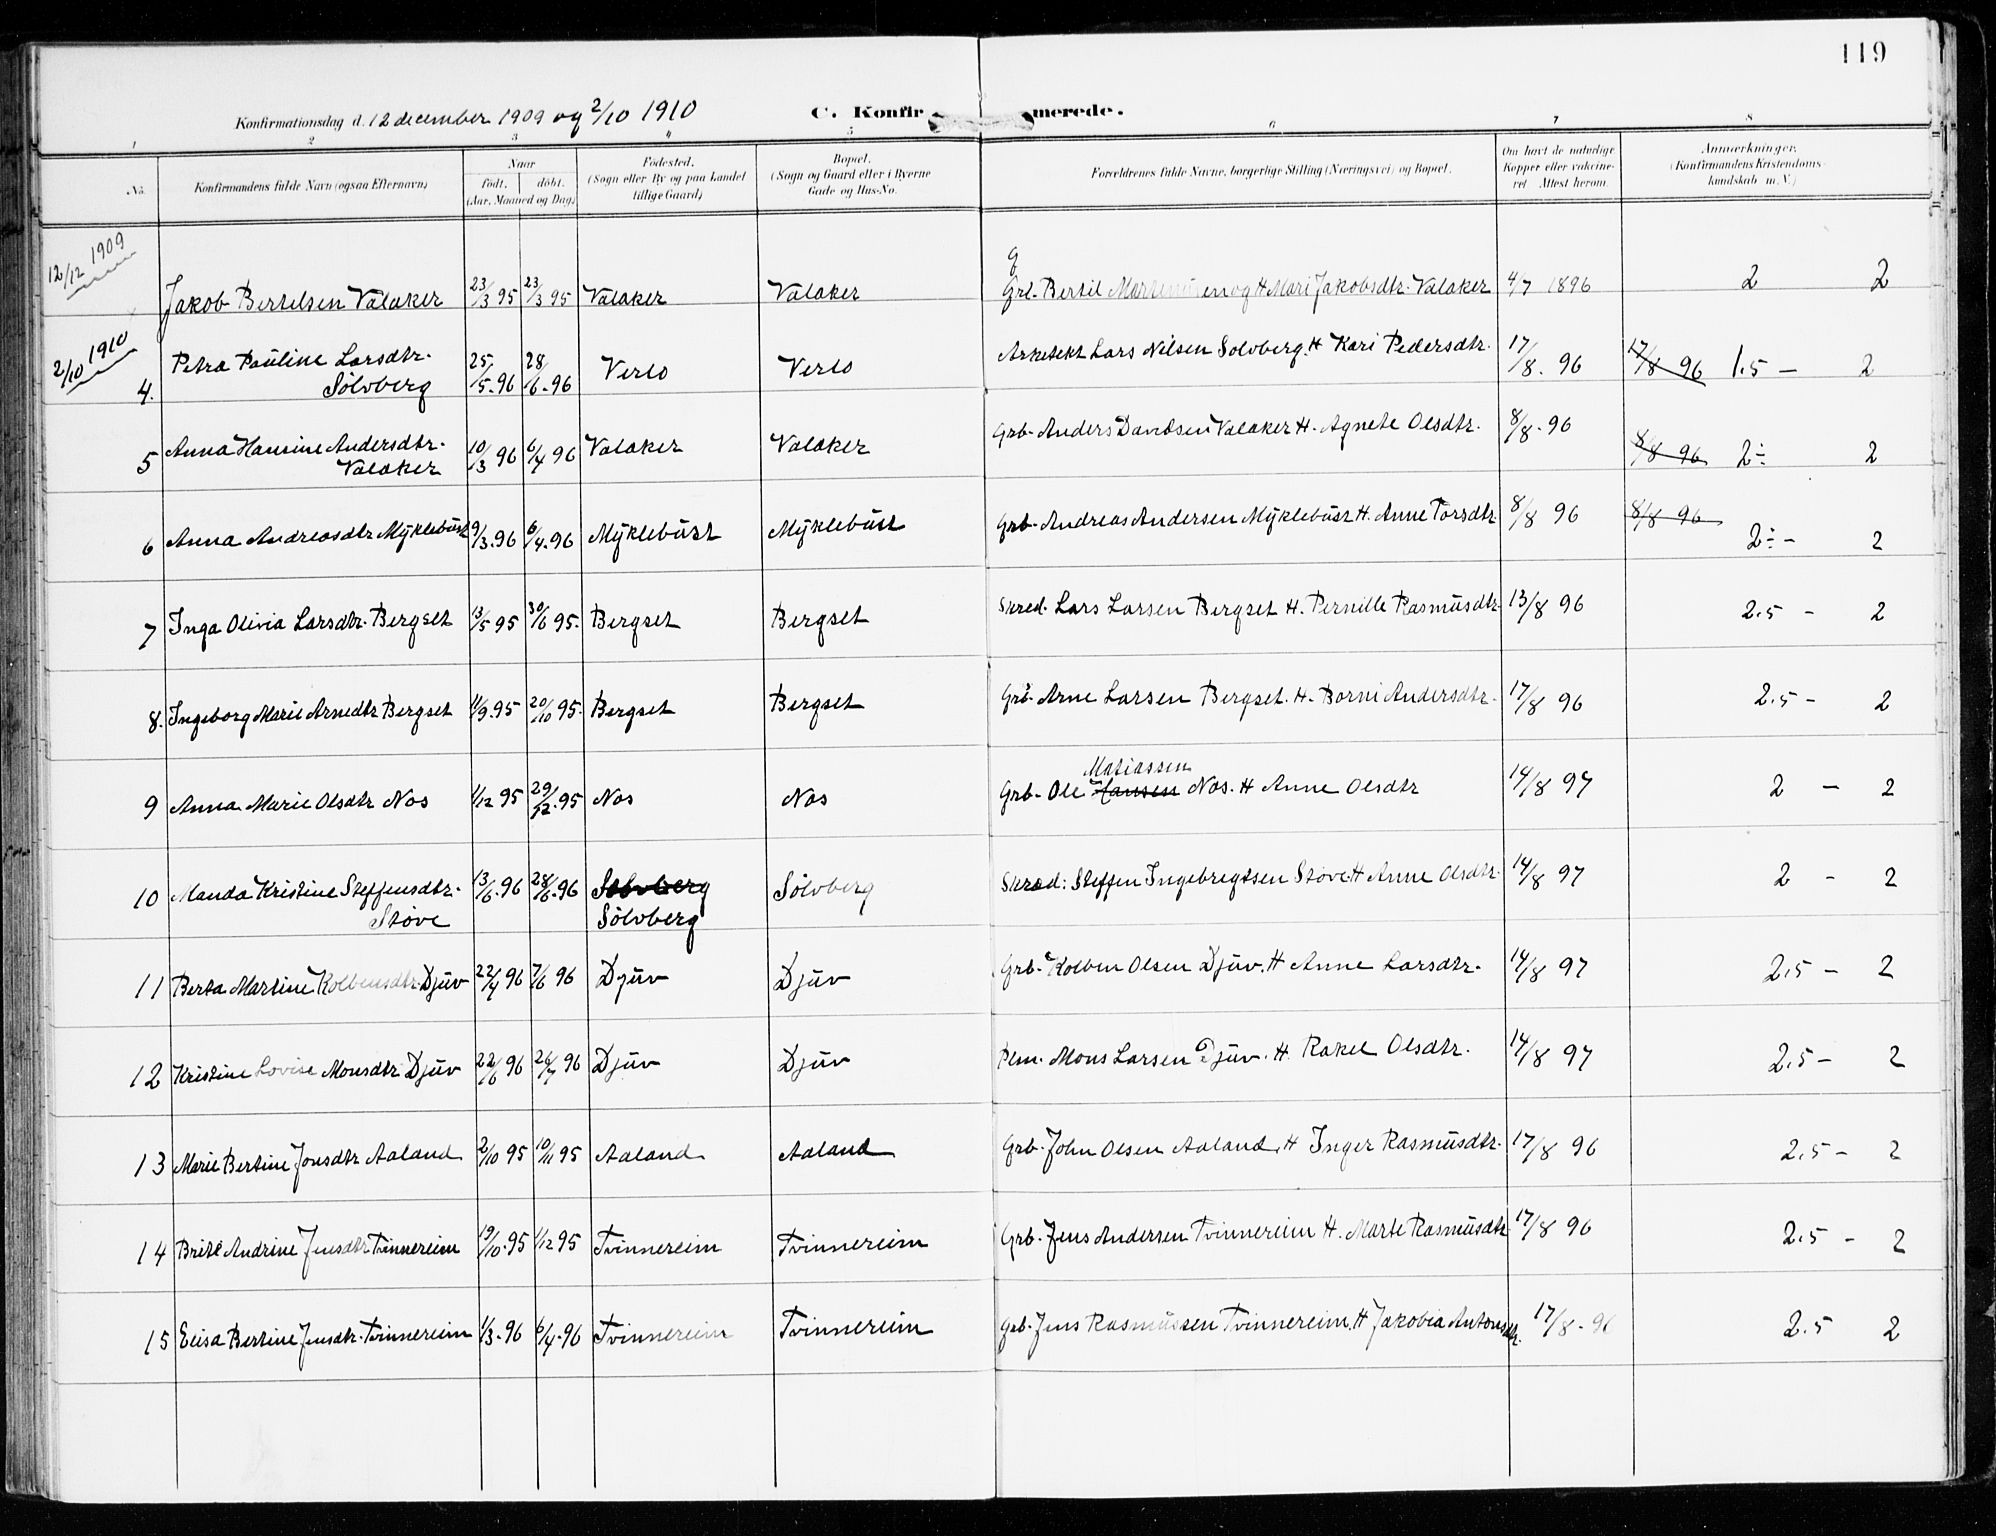 119
Konfirmationsdag d. 12 december 1909 og 2/10 1910 C. Konfirmerede.
1 2 3 " 5 6 7 8
No. Konfirmandens fulde Navn (ogsaa Efternavn) Naar født. døbt. (Aar, Maaned og Dag) Fødested. (Sogn eller By og paa Landet tillige Gaard) Bopæl. (Sogn og Gaard eller i Byerne Gade og Hus-No. Forældrenes fulde Navne, borgerlige Stilling (Næringsvei) og Bopæl. Om havt de naturlige Kopper eller vakcineret Attest herom. Anmærkninger. (Konfirmandens Kristendomskundskab m. V.)
12/12 1909
Jakob Bertelsen Valaker 23/3 95 23/3 95 Valaker Valaker Bertil og H Mari Jakobsdtr. Valaker 4/7 1896 2 2
2/10 1910
4. Petra Pauline Larsdtr. Sölvberg 25/5-96 28/6-96 Verlo Verlo Arketekt Lars Nilsen Solvberg. H Kari Pedersdtr. 17/8. 96 17/8 96 1.5 - 2
5 Anna Hansine Andersdtr. Valaker 10/3 96 6/4 96 Valaker Valaker Grb. Anders Davidsen Valaker H. Agnete Olsdtr. 8/8-96 8/8 96 2÷ 2
6 Anna Andreasdtr Mÿklebüst 9/3.96 6/4.96 Mÿklebüst Mÿklebüst Grb. Andreas Andersen Mÿklebüst H. Anne Torsdtr 8/8 96 8/8 96 2÷- 2
7 Inga Olivia Larsdtr. Bergset 13/5 95 30/6 95. Bergset Bergset Skred. Lars Larsen Bergset H. Pernille Rasmüsdtr. 13/8 96 2.5 - 2
8. Ingeborg Marie Arnedtr Bergset 11/9.95 20/10 95. Bergset Bergset Grb. Arne Larsen Bergset. H. Borni Andersdtr. 17/8 96 2.5 - 2
9 Anna Marie Olsdtr Nos 1/12 95 29/12.95 Nos Nos Grb. Ole Hansen Matiassen Nos. H Anne Olsdtr 14/8 97 2 - 2
10 Manda Kristine Steffensdtr. Støve 13/6.96 28/6.96 Sölvberg Sölvberg Skræd: Steffen Ingebregtsen Støve H Anne Olsdtr. 14/8 97 2 - 2
11 Berta Martine Kolbensdtr. Djüv 22/4 96 7/6 96 Djüv Djüv Grb. Kolben Olsen Djüv. H Anne Larsdtr. 14/8 97 2.5 - 2
12 Kristine Lovise Monsdtr Djüv 22/6 96 26/7 96 Djüv Djüv Plm. Mons Larsen Djüv. H. Rakel Olsdtr. 14/8 97 2.5 - 2
13 Marie Bertine Jonsdtr Aaland 2/10 95 10/11 95 Aaland Aaland Grb. John Olsen Aaland, H Inger Rasmüsdtr. 17/8 96 2.5 - 2
14 Brite Andrine Jensdtr Tvinnereim 19/10.95 1/12 95 Tvinnereim Tvinnereim Grb. Jens Andersen Tvinnereim H. Marte Rasmüsdtr 17/8 96 2.5 - 2
15 Elisa Bertine Jensdtr. Tvinnereim 1/3-96 6/4-96 Tvinnereim Tvinnereim Grb. Jens Rasmüssen Tvinnereim. H Jakobia Antonsdtr. 17/8-96 2.5 2